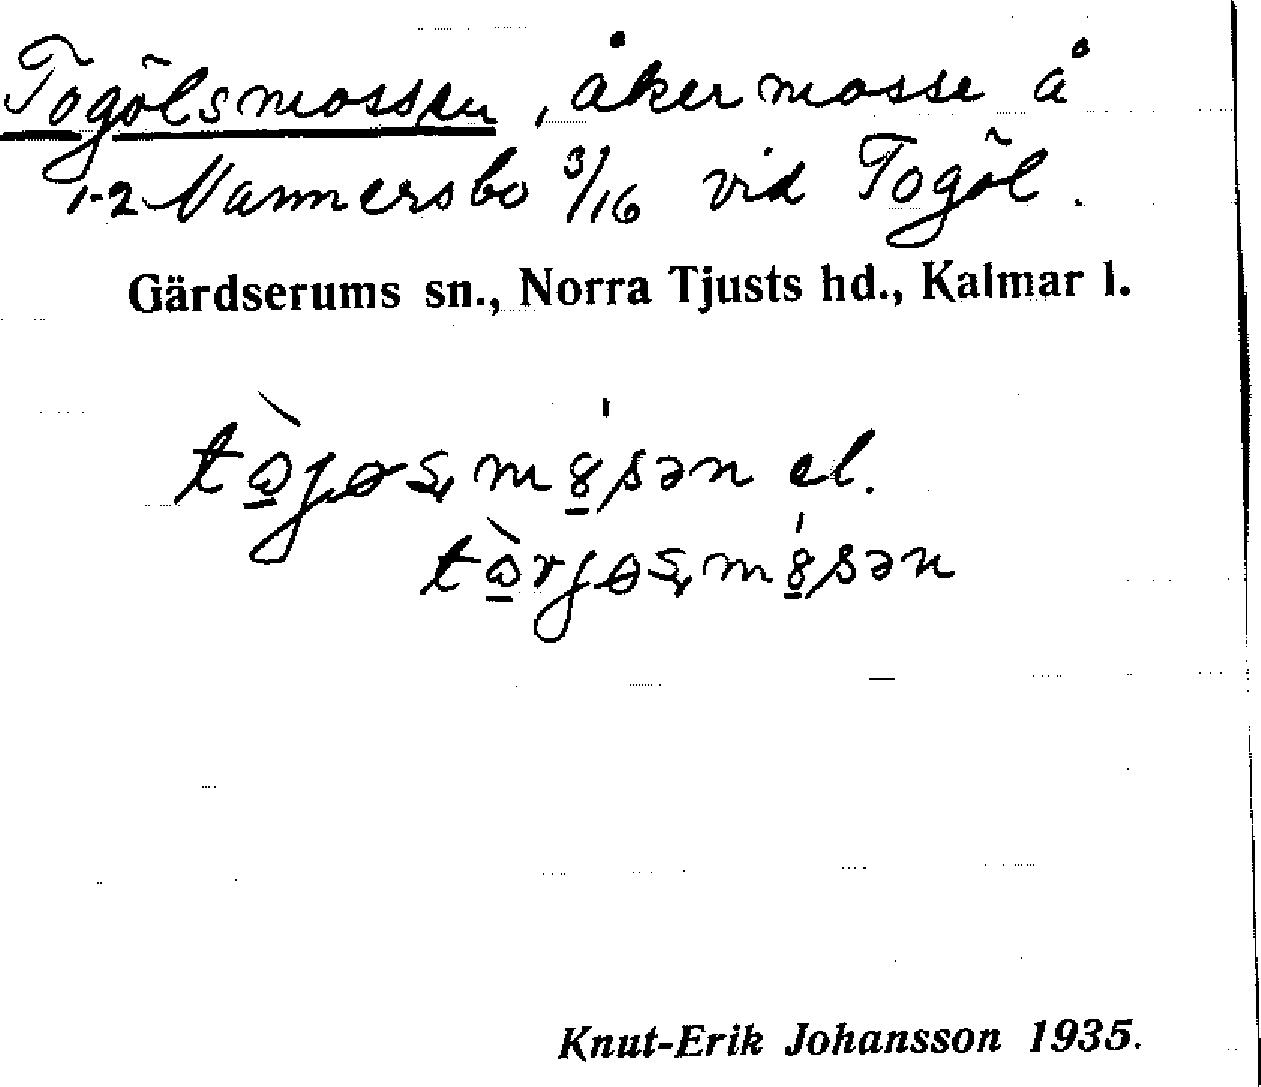 Togölsmossen, åkermosse å
1-2 Vammersbo 3/16 vid Togöl.
Gärdserums sn., Norra Tjusts hd., Kalmar l.
el.
Knut-Erik Johansson 1935.